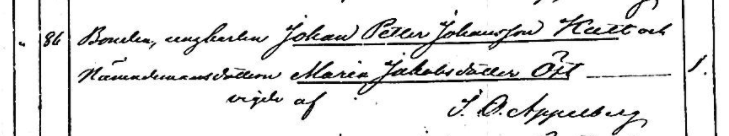 " 86 Bonden, ungkarlen Johan Petter Johansson Kull och
Nämndemansdottern Maria Jakobsdotter Öst 1.
vigde af J. O. Appelberg